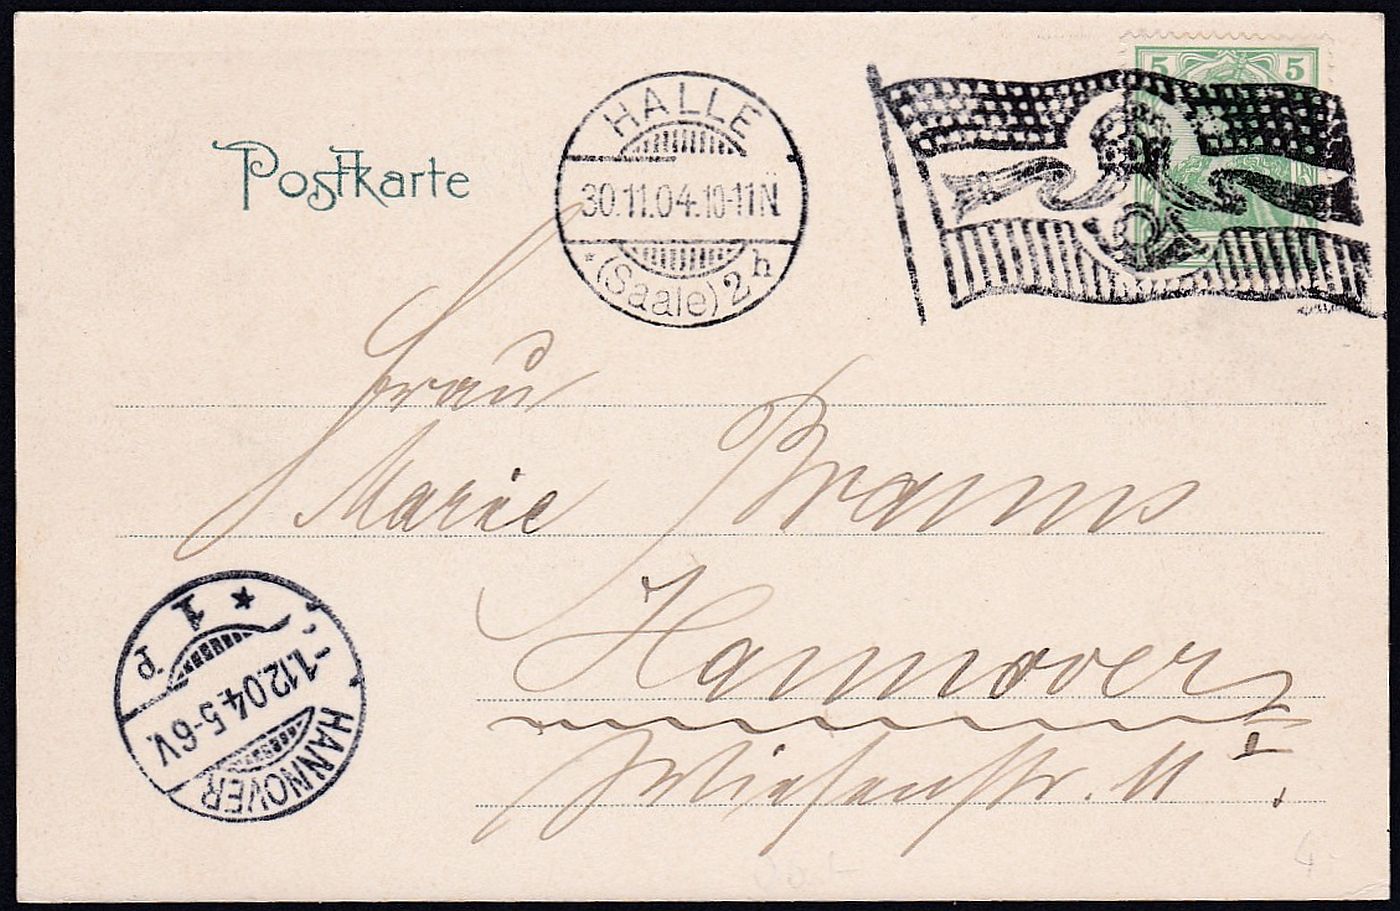 Postkarte
HALLE
30.11.04.10-11N
*(Saale) 2h
5 5
Frau
Marie Brauns
Hannover
Wiesenstr. 11 I.
1 *
P
-1.12.04.5-6V.
HANNOVER